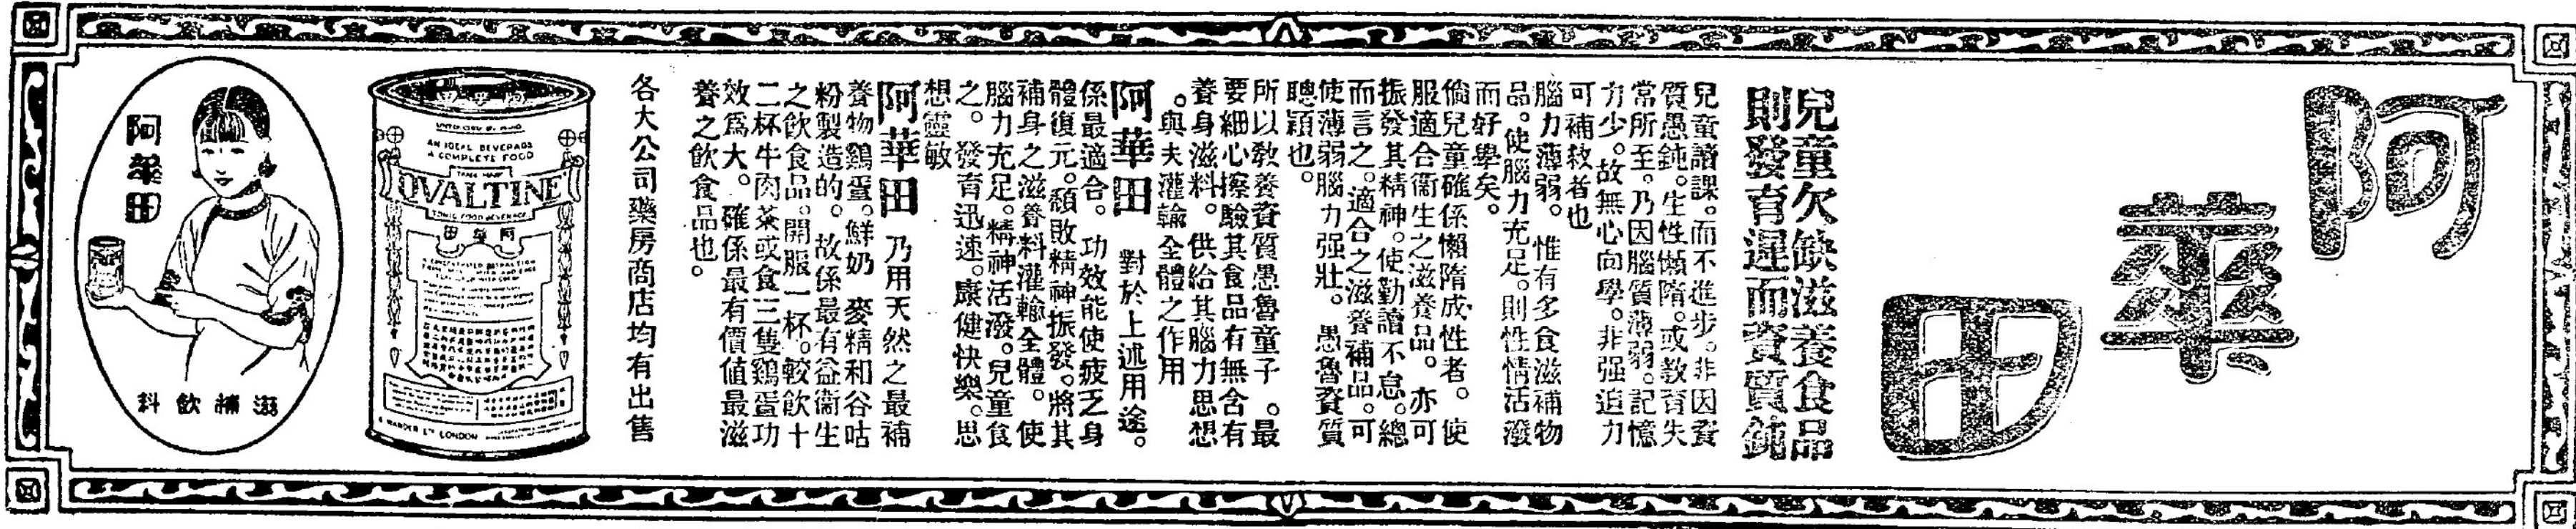 阿華田
兒童欠缺滋養食品
則發育遲而資質鈍
兒童讀課。而不進步。非因資
質愚鈍。生性懶隋。或教育失
常所至。乃因腦質薄弱。記憶
力少。故無心向學。非强迫力
可補救者也
腦力薄弱。惟有多食滋補物
品。使腦力充足。則性情活潑
而好學矣。
倘兒童確係懶隋成性者。使
服適合衞生之滋養品。亦可
振發其精神。使勤讀不怠。總
而言之。適合之滋養補品。可
使薄弱腦力强壯。愚魯資質
聰穎也。
所以敎養資質愚魯童子。最
要細心擦驗其食品有無含有
養身滋料。供給其腦力思想
。與夫灌輸全體之作用
阿華田 對於上述用途。
係最適合。功效能使疲乏身
體復元。頹敗精神振發。將其
補身之滋養料灌輸全體。使
腦力充足。精神活潑。兒童食
之。發育迅速。康健快樂。思
想靈敏
阿華田 乃用天然之最補
養物鷄蛋。鮮奶 麥精和谷咕
粉製造的。故係最有益衞生
之飲食品。開服一杯。較飲十
二杯牛肉茶或食三隻鷄蛋功
效爲大。確係最有價値最滋
養之飲食品也。
各大公司藥房商店均有出售
AN IDEAL BEVERAGE
A COMPLETE FOOD
TRADE MARK
OVALTINE
TONIC FOOD BEVERAGE
阿華田
A WANDER LTD LONDON
阿華田
滋補飲料